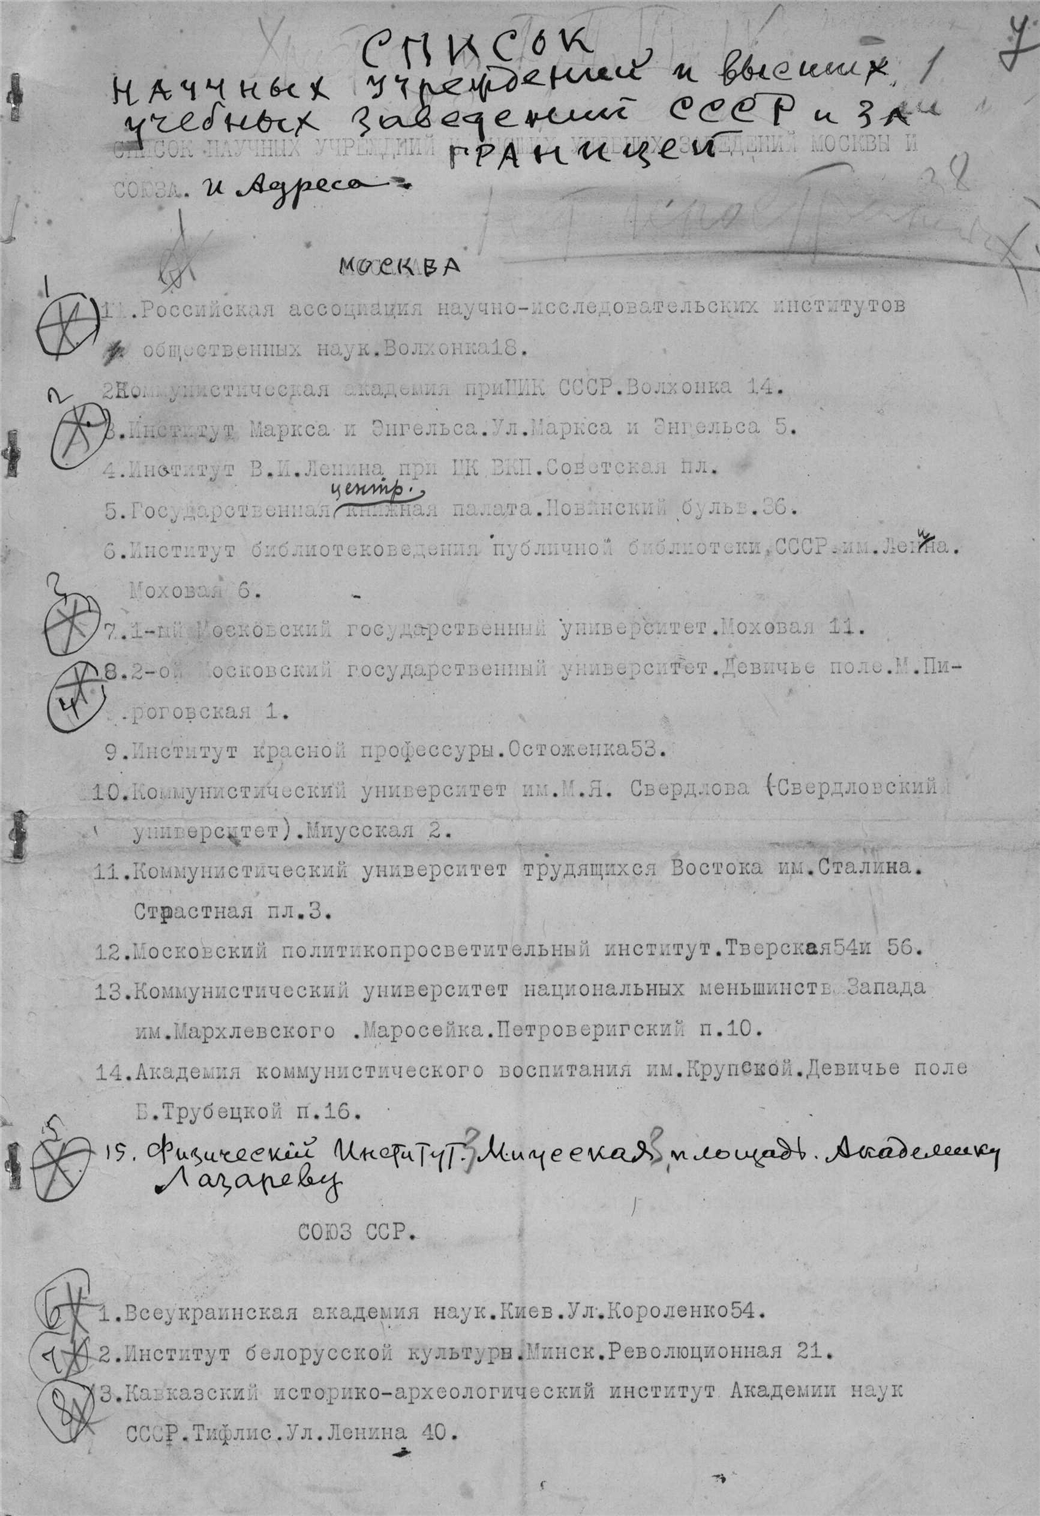 У
СПИСОК
НАУЧНЫХ УЧРЕЖДЕНИЙ и высших
учебных заведений СССР и ЗА
ГРАНИЦЕЙ
СПИСОК НАУЧНЫХ УЧРЕЖДНИЙ УЧЕБНЫХ ЗАВЕДЕНИЙ МОСКВЫ И
СОЮЗА. и Адреса
38
МОСКВА
1
1.Российская ассоциация научно-исследовательских институтов
общественных наук.Волхонка18.
2Коммунистическая академия приЦИК СССР.Волхонка 14.
2
3.Институт Маркса и Энгельса.Ул.Маркса и Энгельса 5.
4.Институт В.И.Ленина при ЦК ВКП.Советская пл.
центр.
5.Государственная книжная палата.Новинский бульв.36.
6.Институт библиотековедения публичной библиотеки СССР им.Ленина.
Моховая 6.
3
7.1-ый Московский государственный университет.Моховая 11.
4
8.2-ой Московский государственный университет.Девичье поле.М.Пи-
роговская 1.
9.Институт красной профессуры.Остоженка53.
10.Коммунистический университет им.М.Я. Свердлова (Свердловский
университет).Миусская 2.
11.Коммунистический университет трудящихся Востока им.Сталина.
Страстная пл.3.
12.Московский политикопросветительный институт.Тверская54и 56.
13.Коммунистический университет национальных меньшинств Запада
им.Мархлевского .Маросейка.Петроверигский п.10.
14.Академия коммунистического воспитания им.Крупской.Девичье поле
Б.Трубецкой п.16.
5
15. Физический Институт. 3 Миусская 3, площадь. Академику
Лазареву
СОЮЗ ССР.
6
1.Всеукраинская академия наук.Киев.Ул.Короленко54.
7
2.Институт белорусской культуры.Минск.Революционная 21.
8
3.Кавказский историко-археологический институт Академии наук
СССР.Тифлис.Ул.Ленина 40.